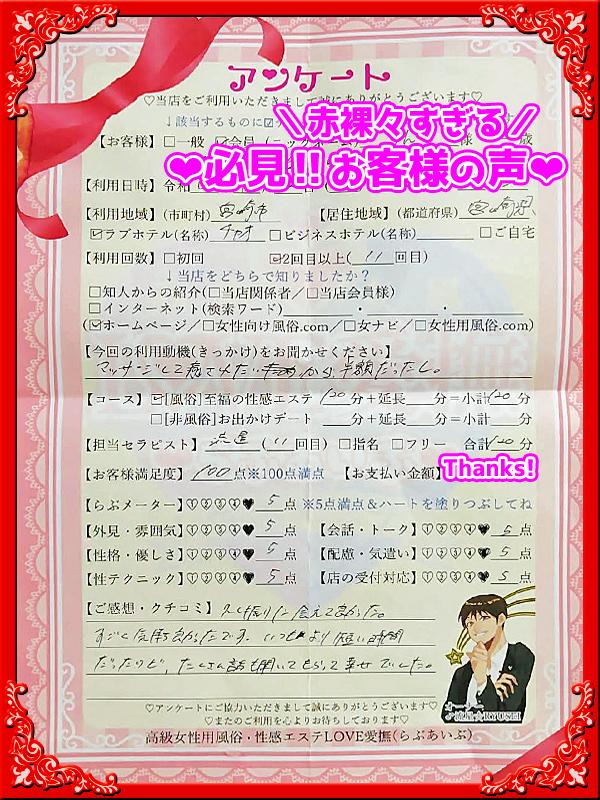 アンケート
♡当店をご利用いただきまして誠にありがとうございます♡
↓該当するものに☑
＼赤裸々すぎる／
❤必見!!お客様の声❤
【お客様】□一般 ☑会員
【利用日時】令和
【利用地域】(市町村)宮崎市 【居住地域】(都道府県)宮崎県
☑ラブホテル(名称)チャオ □ビジネスホテル(名称) □ご自宅
【利用回数】□初回 ☑2回目以上(11回目)
↓当店をどちらで知りましたか？
□知人からの紹介(□当店関係者／□当店会員様)
□インターネット(検索ワード) ・ ・
(☑ホームページ／□女性向け風俗.com／□女ナビ／□女性用風俗.com)
【今回の利用動機(きっかけ)をお聞かせください】
マッサージして癒されたい から、半額だったし。
【コース】☑[風俗]至福の性感エステ 120分＋延長 分＝小計120分
□[非風俗]お出かけデート 分＋延長 分＝小計 分
【担当セラピスト】流星(11回目) □指名 □フリー 合計120分
【お客様満足度】100点※100点満点 【お支払い金額】
Thanks!
【らぶメーター】①②③④♥ 5点 ※5点満点＆ハートを塗りつぶしてね
【外見・雰囲気】①②③④♥ 5点 【会話・トーク】①②③④♥ 5点
【性格・優しさ】①②③④♥ 5点 【配慮・気遣い】①②③④♥ 5点
【性テクニック】①②③④♥ 5点 【店の受付対応】①②③④♥ 5点
【ご感想・クチコミ】久し振りに会えて良かった。
すごく気持ち良かったです。いつもより短い時間
だったけど、たくさん話も聞いてもらって幸せでした。
オーナー
流星☆RYUSEI
♡アンケートにご協力いただきまして誠にありがとうございます♡
♡またのご利用を心よりお待ちしております♡
高級女性用風俗・性感エステLOVE愛撫(らぶあいぶ)